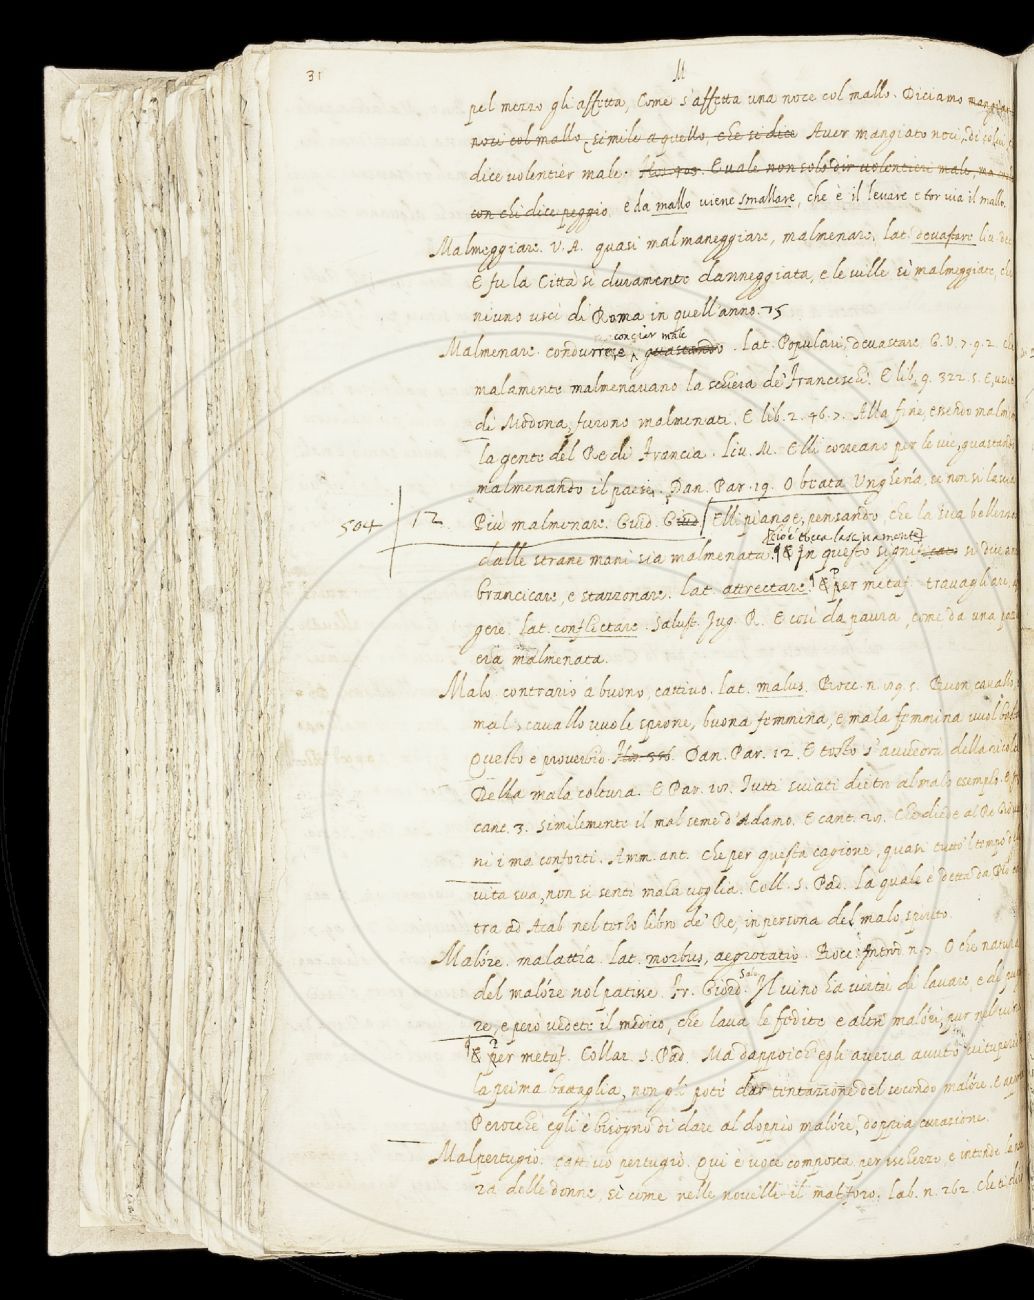 31
M
pel mezzo gli affetta, Come s'affetta una noce col mallo. Diciamo mangiar
noci col mallo, simile a quello, che si dice Aver mangiato noci, di colui
dice volentier male. E vale non solo dir volentieri male, ma
con chi dice peggio. e da mallo viene smallare, che è il levare e tor via il mallo.
Malmeggiare. V. A. quasi malmaneggiare, malmenare, lat. devastare liv. dec
E fu la Città sì duramente danneggiata, e le ville sì malmeggiate, che
niuno uscì di Roma in quell'anno. 75
concier male
Malmenare. condurre guastando. Lat. Populari, devastare G. V. 7. 9. 2. che
malamente malmenavano la schiera de' Franceschi. E lib. 9. 322. 5.
di Modona, furono malmenati. E lib. 2. 46. 7. Alla fine, essendo malm
la gente del Re di Francia. Liv. M. Elli correano per le vie, guastando
malmenando il paese. Dan. Par. 19. O beata Ungheria, se non si lascia
504 12. Più malmenare. Guid. Guid. Elli piange, pensando, che la sua bellezza
cioè tocca lascivamente
dalle strane mani sia malmenata. ¶ & In questo signif. si dice
brancicare, e stazzonare. lat. attrectare. ¶ & Per metaf. travagliare,
gere. Lat. conflictare. Salust. Jug. R. E così da paura, come da una
era malmenata.
Malo. contrario a buono, cattivo. Lat. malus. Bocc. n. 89. 5. Buon cavallo,
mal cavallo vuole sprone, buona femmina, e mala femmina vuol bastone
Questo è proverbio. Dan. Par. 12. E tosto s'avvedrà della ricolta
Della mala coltura. E Par. 18. Tutti sviati dietro al malo esemplo. E
cant. 3. Similemente il mal seme d'Adamo. E cant. 28. Che diedi al Re
ni i ma conforti. Amm. ant. Che per questa cagione, quasi tutto 'l tempo
vita sua, non si sentì mala voglia. Coll. S. Pad. La quale è detta da
tra ad Acab nel terzo libro de' Re, in persona del malo spirito.
Malóre. malattia. Lat. morbus, aegrotatio. Bocc. Introd. n. 7. O che natura
Salv.
del malóre nol patisse. Fr. Giord. Il vino ha virtù di lavare, e di
re, e però vedete il medico, che lava le fedite e altri malóri, pur nel vino
¶ & per metaf. Collaz. S. Pad. Ma dappoich'egli aveva avuto
la prima battaglia, non gli poté dar tentazione del secondo malóre. E
Perocchè egli è bisogno di dare al doppio malóre, doppia curazione.
Malpertugio. cattivo pertugio. Qui è voce composta per ischerzo, e intende
ra delle donne, sì come nelle novelle il mal foro. Lab. n. 262. Che ti